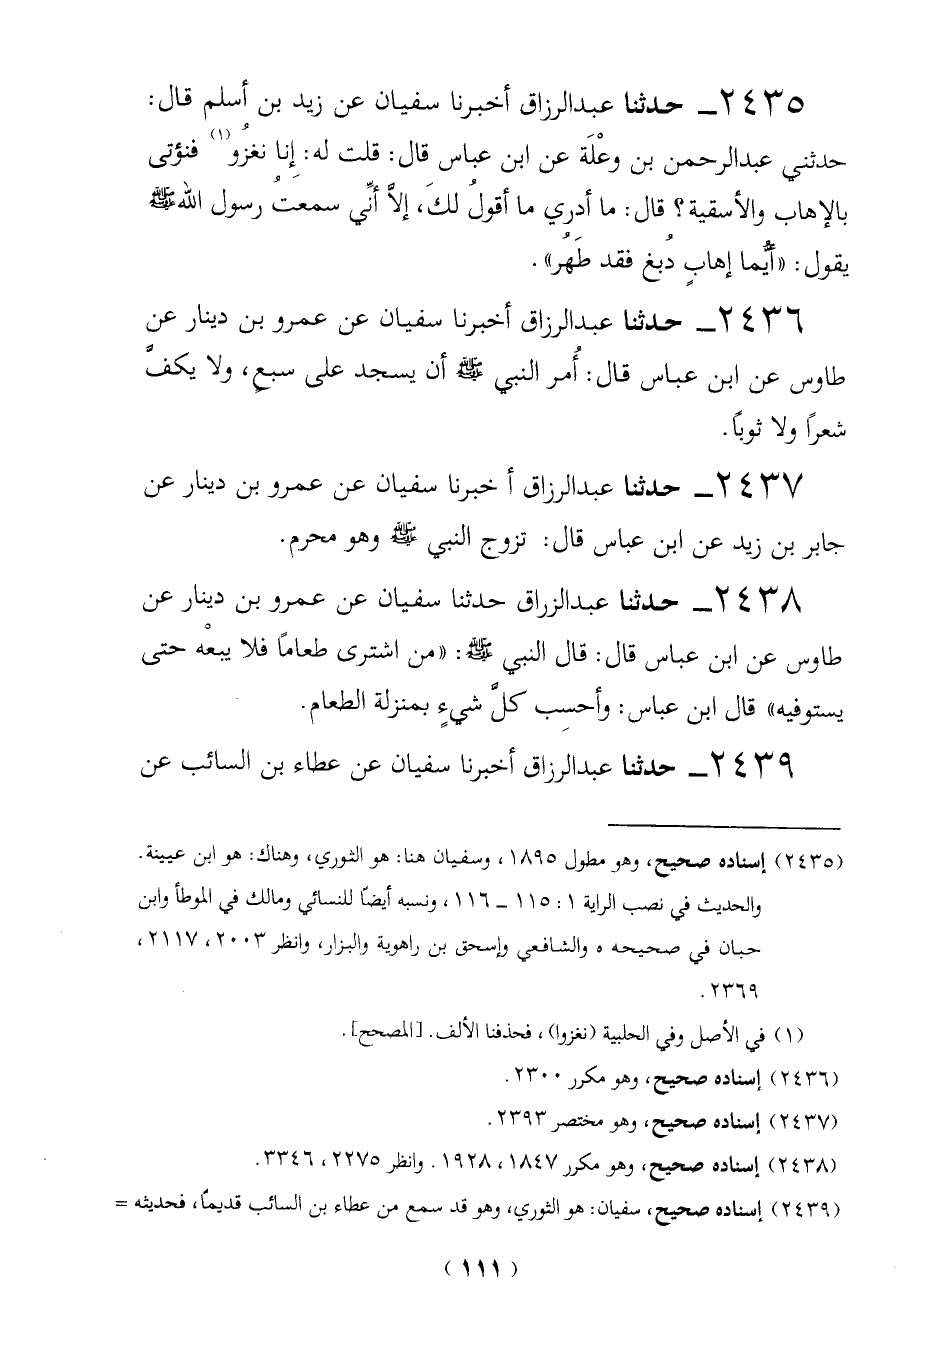 ٢٤٣٥ــ حدثنا عبدالرزاق أخبرنا سفيان عن زيد بن أسلم قال:
حدثني عبدالرحمن بن وعْلَة عن ابن عباس قال: قلت له: إِنا نغزُو(١) فنؤتى
بالإهاب والأسقية؟ قال: ما أدري ما أقولُ لكَ، إلاَّ أنِّي سمعتُ رسول الله ﷺ
يقول: «أَيُّما إهابٍ دُبغ فقد طَهُر».
٢٤٣٦ــ حدثنا عبدالرزاق أخبرنا سفيان عن عمرو بن دينار عن
طاوس عن ابن عباس قال: أُمر النبي ﷺ أن يسجد على سبعٍ، ولا يكفَّ
شعراً ولا ثوباً.
٢٤٣٧ــ حدثنا عبدالرزاق أ خبرنا سفيان عن عمرو بن دينار عن
جابر بن زيد عن ابن عباس قال: تزوج النبي ﷺ وهو محرم.
٢٤٣٨ــ حدثنا عبدالرزاق حدثنا سفيان عن عمرو بن دينار عن
طاوس عن ابن عباس قال: قال النبي ﷺ: «من اشترى طعاماً فلا يبعْه حتى
يستوفيه» قال ابن عباس: وأحسِب كلَّ شيءٍ بمنزلة الطعام.
٢٤٣٩ــ حدثنا عبدالرزاق أخبرنا سفيان عن عطاء بن السائب عن
(٢٤٣٥) إسناده صحيح، وهو مطول ١٨٩٥، وسفيان هنا: هو الثوري، وهناك: هو ابن عيينة.
والحديث في نصب الراية ١: ١١٥ ــ ١١٦، ونسبه أيضاً للنسائي ومالك في الموطأ وابن
حبان في صحيحه ه والشافعي وإسحق بن راهوية والبزار، وانظر ٢٠٠٣، ٢١١٧،
٢٣٦٩.
(١) في الأصل وفي الحلبية (نغزوا)، فحذفنا الألف. [المصحح].
(٢٤٣٦) إسناده صحيح، وهو مكرر ٢٣٠٠.
(٢٤٣٧) إسناده صحيح، وهو مختصر ٢٣٩٣.
(٢٤٣٨) إسناده صحيح، وهو مكرر ١٨٤٧، ١٩٢٨. وانظر ٢٢٧٥، ٣٣٤٦.
(٢٤٣٩) إسناده صحيح، سفيان: هو الثوري، وهو قد سمع من عطاء بن السائب قديماً، فحديثه =
(١١١)